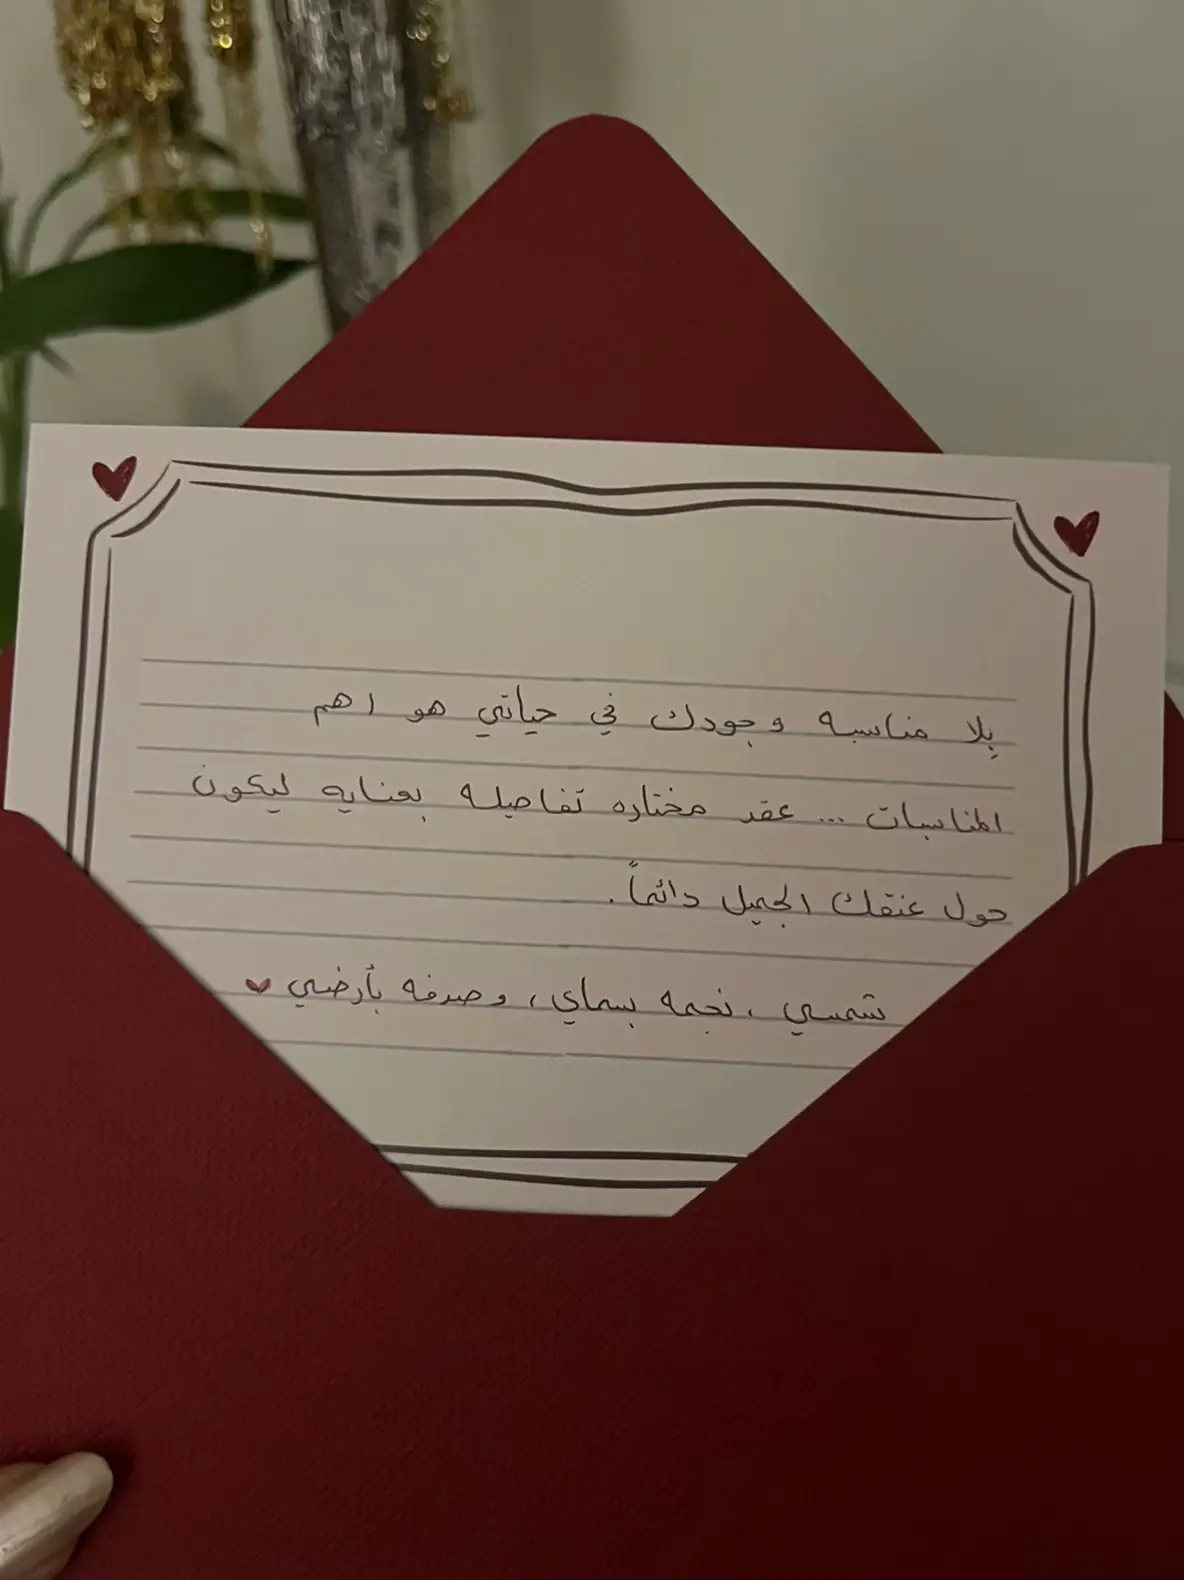 بلا مناسبه وجودك في حياتي هو اهم
المناسبات ... عقد مختاره تفاصيله بعنايه ليكون
حول عنقك الجميل دائماً.
شمسي ، نجمه بسماي ، وصدفه بأرضي